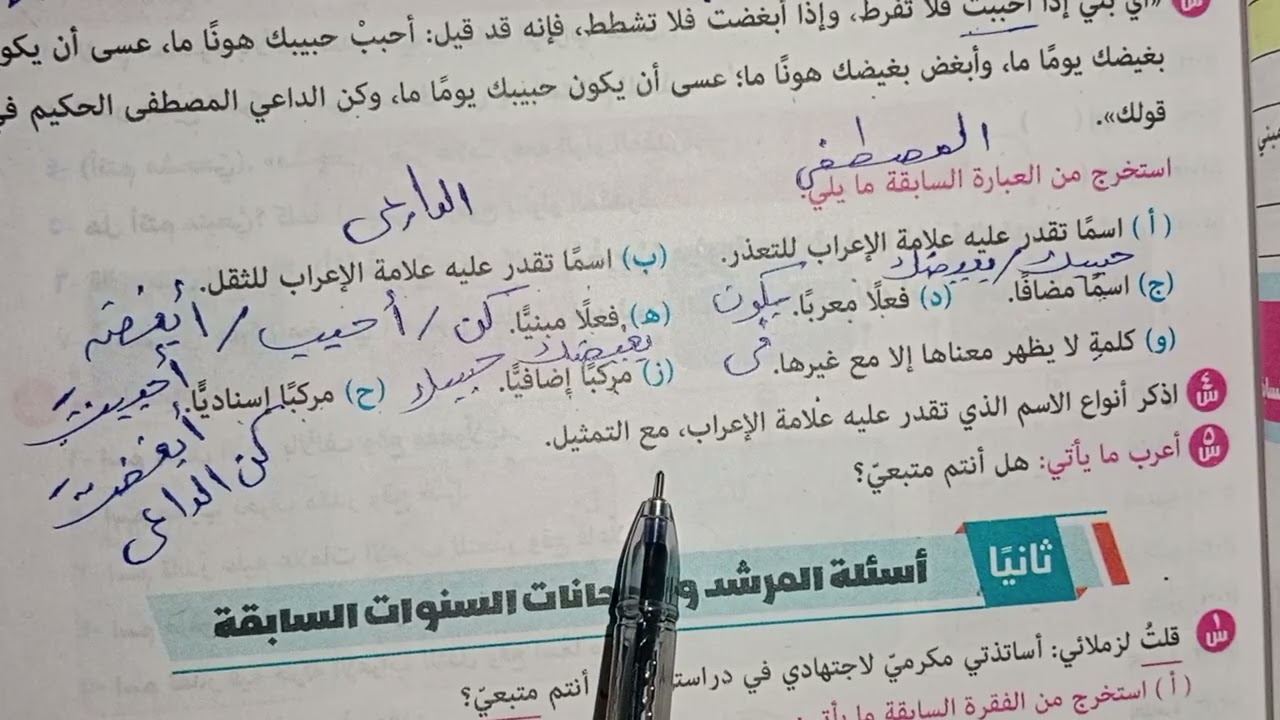 «أي بني إذا أحببت فلا تفرط، وإذا أبغضت فلا تشطط، فإنه قد قيل: أحببْ حبيبك هونًا ما، عسى أن يكو
بغيضك يومًا ما، وأبغض بغيضك هونًا ما؛ عسى أن يكون حبيبك يومًا ما، وكن الداعي المصطفى الحكيم في
قولك».
المصطفى
استخرج من العبارة السابقة ما يلي:
الداعى
(أ) اسمًا تقدر عليه علامة الإعراب للتعذر. (ب) اسمًا تقدر عليه علامة الإعراب للثقل.
حبيبك / بغيضك
(ج) اسمًا مضافًا. (د) فعلًا معربًا. يكون (هـ) فعلًا مبنيًّا. كن / أحبب / أبغضت
(و) كلمةِ لا يظهر معناها إلا مع غيرها. فى (ز) مركبًا إضافيًّا. بغيضك حبيبك (ح) مركبًا إسناديًّا. أحببت
أبغضت
كن الداعى
س٤ اذكر أنواع الاسم الذي تقدر عليه علامة الإعراب، مع التمثيل.
س٥ أعرب ما يأتي: هل أنتم متبعيّ؟
ثانيًا أسئلة المرشد السنوات السابقة
س١ قلتُ لزملائي: أساتذتي مكرميّ لاجتهادي في أنتم متبعيّ؟
(أ) استخرج من الفقرة السابقة ما